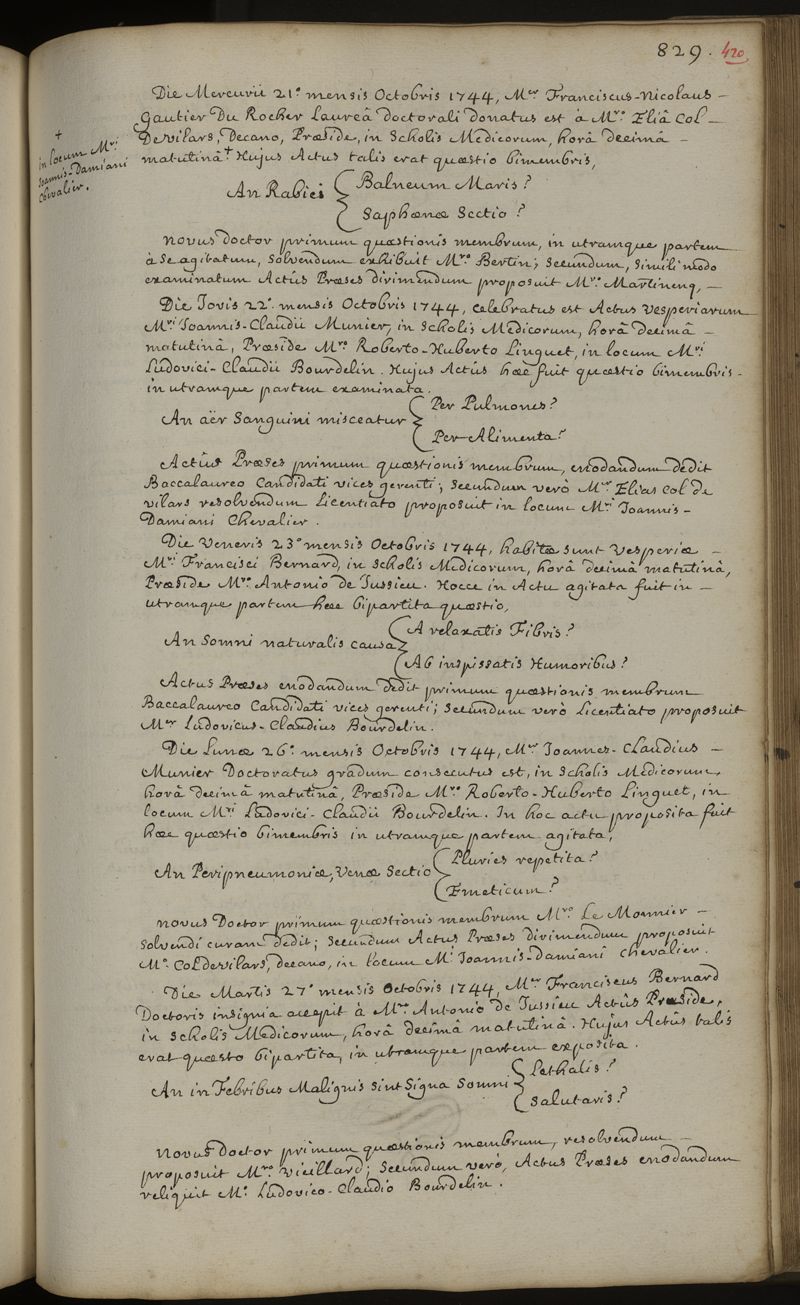 829. 420
Die Mercurii 21.ª mensis Octobris 1744, M.er Franciscus-Nicolaus –
Gautier Du Rocher Laureâ doctorali donatus est à M.ro Eliâ Col –
Devilars, Decano, Præside, in Scholis Medicorum, horâ decimâ –
matutinâ.+ Hujus Actus talis erat quæstio bimembris,
+
in locum M.ri
Joannis-Damiani
Chevalier.
An Rabiei { Balneum Maris?
Saphænæ Sectio?
Novus doctor primum quæstionis membrum, in utramque partem
à se agitatum, solvendum exhibuit M.ro Bertin; secundum, simili modo
examinatum Actûs Præses dirimendum proposuit M.ro Martinenq, –
Die Jovis 22.ª mensis Octobris 1744, celebratus est Actus Vesperiarum
M.ri Joannis-Claudii Munier, in Scholis Medicorum, horâ decimâ –
matutinâ, Præside M.ro Roberto-Huberto Linguet, in locum M.ri
Ludovici-Claudii Bourdelin. Hujus Actûs hæc fuit quæstio bimembris
in utramque partem examinata.
An aër Sanguini misceatur { Per Pulmones?
Per Alimenta?
Actûs Præses primum quæstionis membrum, enodandum dedit
Baccalaureo Candidati vices gerenti; secundum verò M.er Elias Col de
vilars resolvendum Licentiato proposuit in locum M.ri Joannis-
Damiani Chevalier.
Die Veneris 23.ª mensis Octobris 1744, habitæ sunt Vesperiæ –
M.ri Francisci Bernard, in Scholis Medicorum, horâ decimâ matutinâ,
Præside M.ro Antonio de Jussieu. Hocce in Actu agitata fuit in –
utramque partem hæc bipartita quæstio,
An Somni naturalis causa { A relaxatis Fibris?
Ab inspissatis Humoribus?
Actus Præses enodandum dedit primum quæstionis membrum
Baccalaureo Candidati vices gerenti; secundum verò Licentiato proposuit
M.er Ludovicus-Claudius Bourdelin.
Die Lunæ 26.ª mensis Octobris 1744, M.er Joannes-Claudius –
Munier Doctoratus gradum consecutus est, in Scholis Medicorum,
horâ decimâ matutinâ, Præside M.ro Roberto-Huberto Linguet, in
locum M.ri Ludovici-Claudii Bourdelin. In hoc actu proposita fuit
hæc quæstio bimembris in utramque partem agitata,
An Peripneumoniæ, Venæ Sectio { Pluries repetita?
Emeticum?
Novus Doctor primum quæstionis membrum M.ro Le Monnier –
solvendi curam dedit; secundum Actus Præses dirimendum proposuit
M.o Coldevilars, decano, in locum M.i Joannis-Damiani Chevalier.
Die Martis 27.ª mensis Octobris 1744, M.er Franciscus Bernard
Doctoris insignia accepit à M.ro Antonio de Jussieu Actûs Præside,
in Scholis Medicorum, horâ decimâ matutinâ. Hujus Actûs talis
erat quæsto bipartita, in utramque partem exposita.
An in Febribus Malignis sint Signa Somni { Lethalis?
Salutaris?
Novus Doctor primum quæstionis membrum, resolvendum –
proposuit M.ro Vieillard; secundum verò, Actus Præses enodandum
reliquit M.o Ludovico-Claudio Bourdelin.